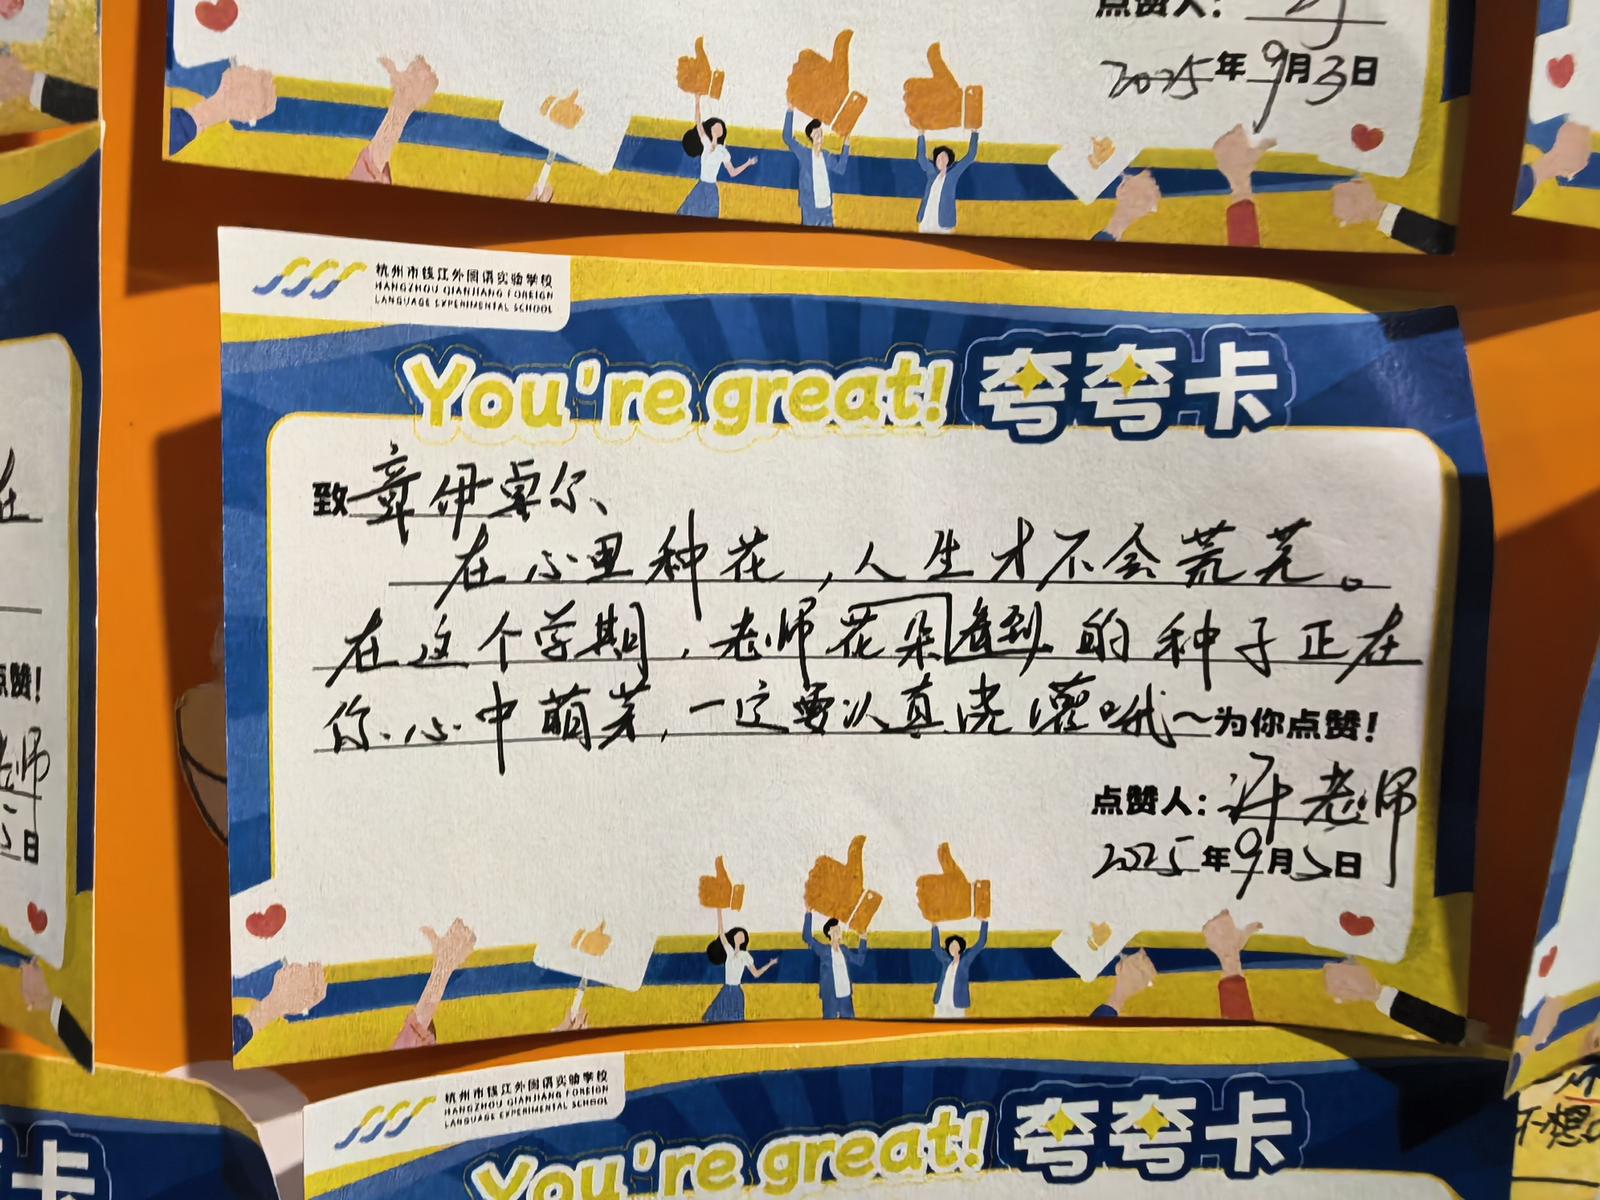 点赞人:
2025年9月3日
杭州市钱江外国语实验学校
HANGZHOU QIANJIANG FOREIGN
LANGUAGE EXPERIMENTAL SCHOOL
You're great! 夸夸卡
致章伊卓尔、
在心里种花,人生才不会荒芜。
在这个学期,老师花朵看到的种子正在
你心中萌芽,一定要认真浇灌哦~为你点赞!
点赞人:许老师
2025年9月3日
杭州市钱江外国语实验学校
HANGZHOU QIANJIANG FOREIGN
LANGUAGE EXPERIMENTAL SCHOOL
You're great! 夸夸卡
在
点赞!
老师
日
卡
不想